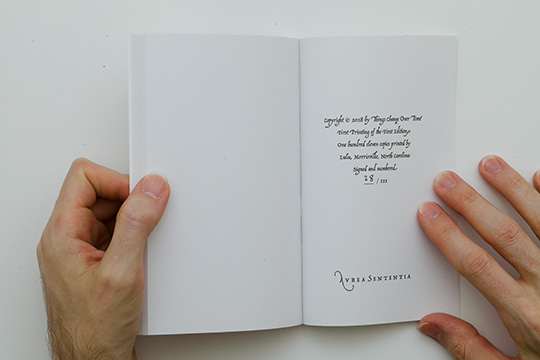 Copyright © 2018 by Things Change Over Time
First Printing of the First Edition
One hundred eleven copies printed by
Lulu, Morrisville, North Carolina
Signed and numbered
28 / 111
AVREA SENTENTIA